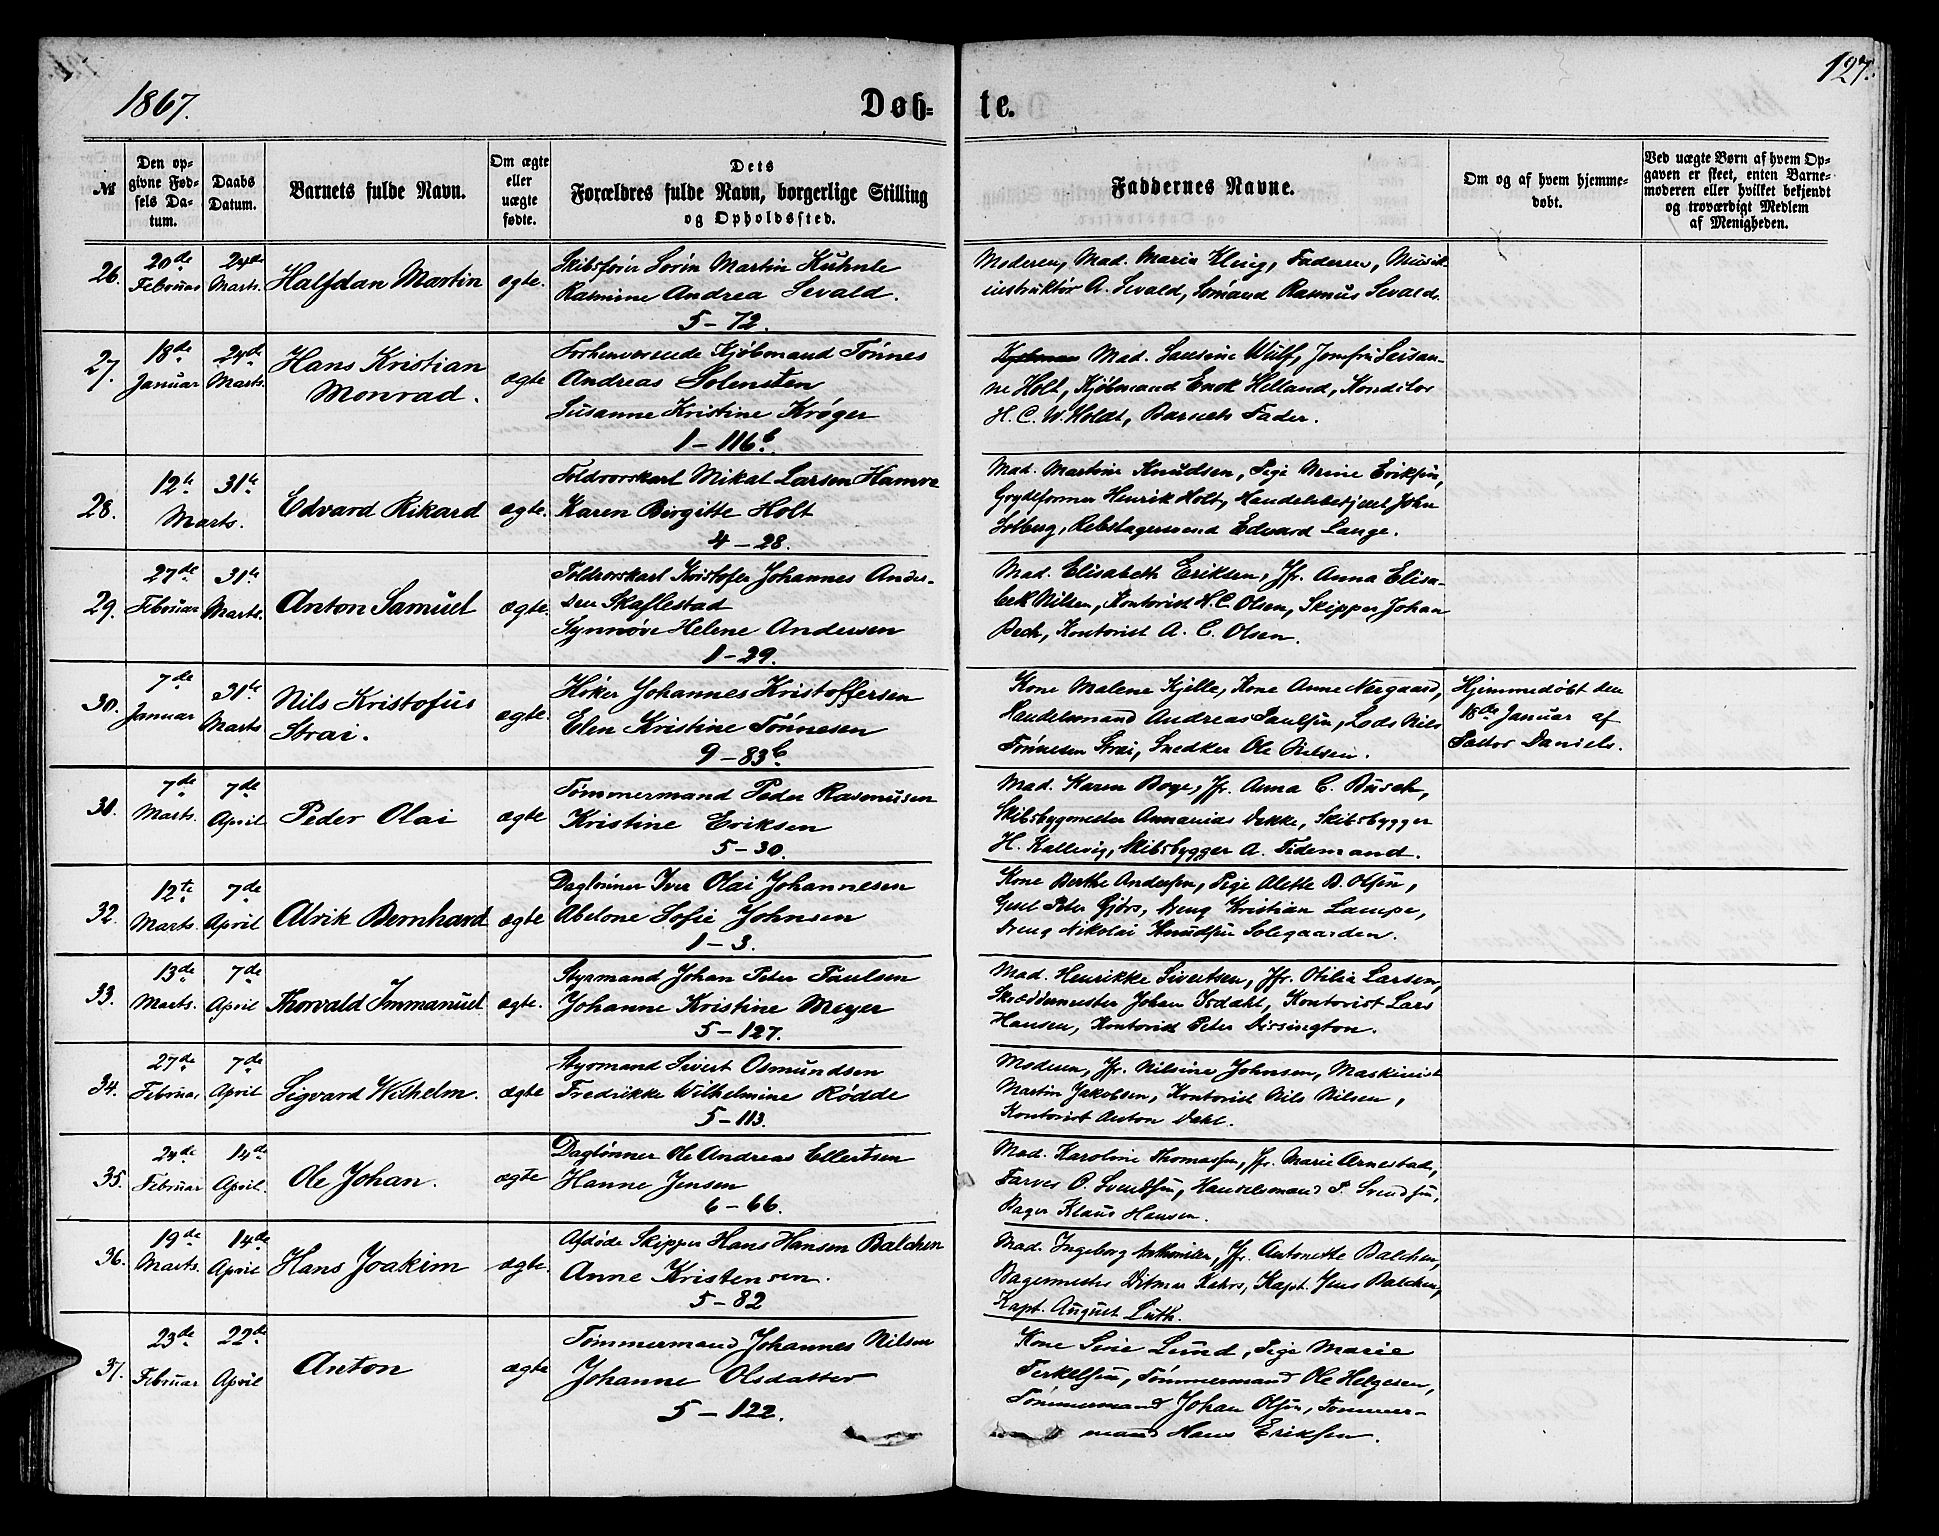 1867.
Døb-
te.
127.
№
Den op-
givne Fød-
sels Da-
tum.
Daabs
Datum.
Barnets fulde Navn.
Om ægte
eller
uægte
fødte.
Dets
Forældres fulde Navn, borgerlige Stilling
og Opholdssted.
Faddernes Navne.
Om og af hvem hjemme-
døbt.
Ved uægte Børn af hvem Op-
gaven er skeet, enten Barne-
moderen eller hvilket bekjendt
og troværdigt Medlem
af Menigheden.
26.
20de
Februar
24de
Marts.
Halfdan Martin
ægte.
Skibsfører Sørin Martin Kuhnle
Rasmine Andrea Sevald.
5 – 72.
Moderen, Mad. Maria Kling, Faderen, Musik
instruktør A. Sevald, Sømand Rasmus Sevald.
27.
18de
Januar
24de
Marts.
Hans Kristian
Monrad.
ægte
Forhenværende Kjøbmand Tønnes
Andreas Solensten
Susanne Kristine Krøger
1 – 116b.
Mad. Wulf, Jomfru Susan-
ne Holt, Kjøbmand Enok Helland, Konditor
H. C. W. Holdt, Barnets Fader.
28.
12te
31te
Marts.
Edvard Rikard
ægte.
Toldrorskarl Mikal Larsen Hamre
Karen Birgitte Holt
4 – 28.
Mad. Martine Knudsen, Pige Mine Eriksen,
Grydeformer Henrik Holt, Handelsbetjent John
Solberg, Rebslagersvend Edvard Lange.
29.
27de
Februar
31te
Marts.
Anton Samuel
ægte.
Toldrorskarl Kristofer Johannes Ander-
sen Skaflestad
Synnøve Helene Andersen
1 – 29.
Mad. Elisabeth Eriksen, Jfr. Anna Elisa-
bek Nilsen, Kontorist H. C. Olsen, Skipper Johan
Bech, Kontorist A. C. Olsen.
30.
7de
Januar
31te
Marts
Nils Kristofus
Strai.
ægte.
Høker Johannes Kristoffersen
Elen Kristine Tønnesen
9 – 83b.
Kone Malene Kjelle, Kone Anne Nergaard,
Handelsmand Andreas Paulsen, Lods Nils
Tønnesen Strai, Snedker Ole Nilsen.
Hjemmedøbt den
18de Januar af
Pastor Daniels.
31.
7de
Marts.
7de
April
Peder Olai
ægte
Tømmermand Peder Rasmusen
Kristine Eriksen
5 – 30.
Mad. Karen Boge, Jfr. Anna C. Busch,
Skibsbygmester Annanias Dekke, Skibsbygger
H. Kallevig, Skibsbygger A. Tidemand.
32.
12te
Marts.
7de
April
Alrik Bernhard
ægte
Daglønner Iver Olai Johannesen
Abelone Sofie Johnsen
1 – 3.
Kone Berthe Andersen, Pige Alette B. Olsen,
Gesel Peter Gjørs, Dreng Kristian Lampe,
Dreng Nikolai Knudsen Solegaarden.
33.
13de
Marts.
7de
April
Thorvald Immanuel
ægte.
Styrmand Johan Peter Paulsen
Johanne Kristine Meyer
5 – 127.
Mad. Henrikke Sivertsen, Jfr. Otilia Larsen,
Skræddermester Johan Isdahl, Kontorist Lars
Hansen, Kontorist Peter Dirsington.
34.
27de
Februar
7de
April
Sigvard Wilhelm.
ægte
Styrmand Sivert Osmundsen
Fredrikke Wilhelmine Rødde
5 – 113.
Moderen, Jfr. Nilsine Johnsen, Maskinist
Martin Jakobsen, Kontorist Nils Nilsen,
Kontorist Anton Dahl.
35.
24de
Februar
14de
April.
Ole Johan.
ægte
Dagtønner Ole Andreas Ellertsen
Hanne Jensen
6 – 66.
Mad. Karoline Thomassen, Jfr. Marie Arnestad,
Farver O. Svendsen, Handelsmand P. Svendsen,
Bager Klaus Hansen.
36.
19de
Marts.
14de
April
Hans Joakim
ægte.
Afdøde Skipper Hans Hansen Balchen
Anne Kristensen.
5 – 82
Mad. Ingeborg Jfr. Antonette Balchen,
Bagermester Ditmar Kahrs, Kapt. Jens Balchen,
Kapt. August Lüth.
37.
23de
Februar
22de
April
Anton
ægte
Tømmermand Johannes Nilsen
Johanne Olsdatter
5 – 122.
Kone Sine Lund, Pige Marie
Terkelsen, Tømmermand Ole Helgesen,
Tømmermand Johan Olsen, Tømmer-
mand Hans Eriksen.